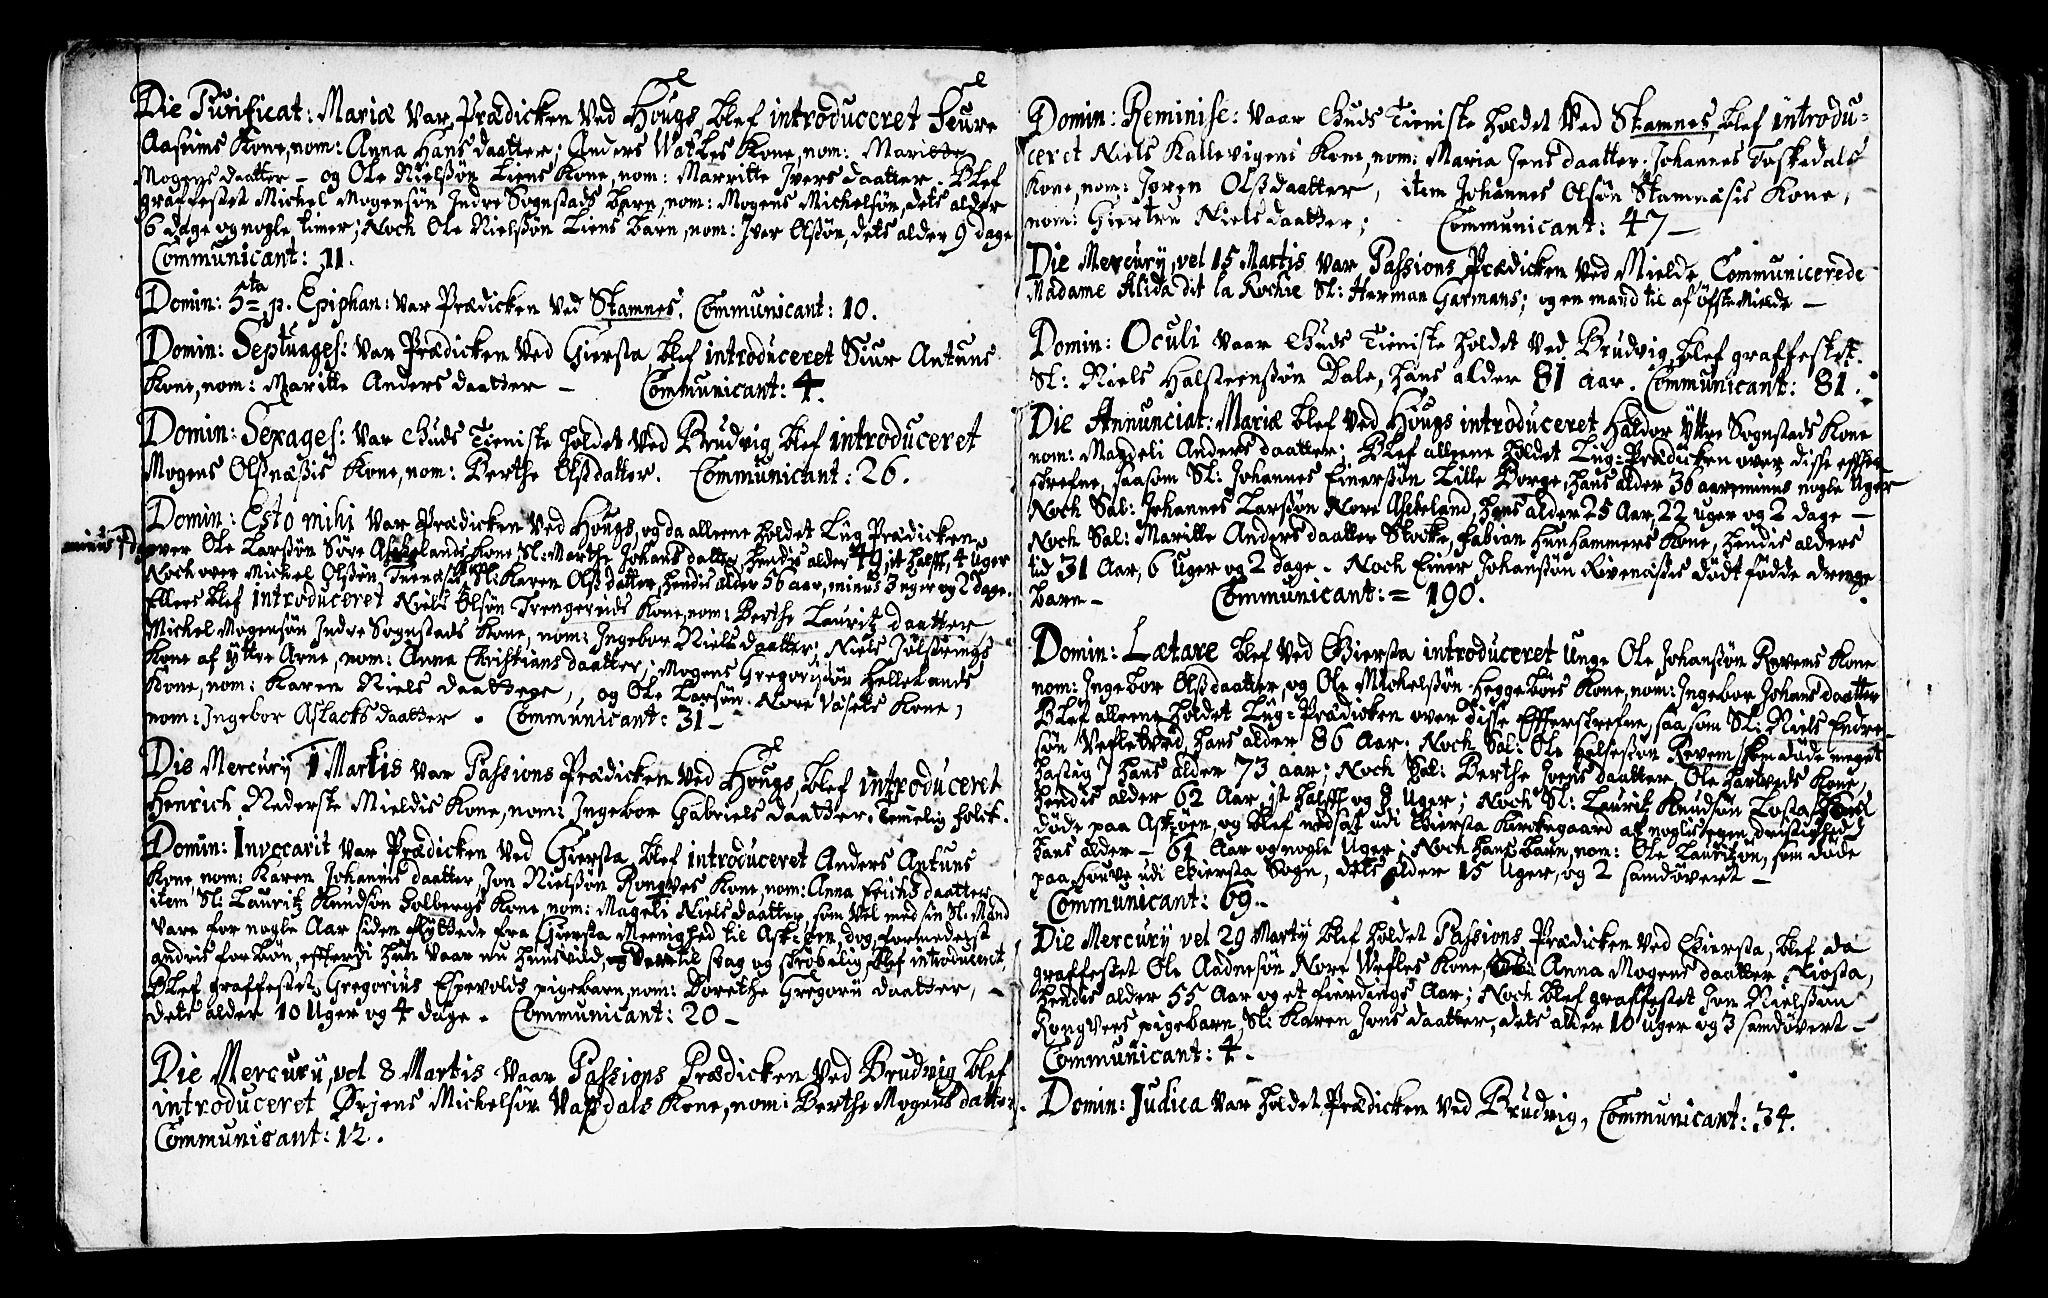 Die Purificat: Mariæ var Prædicken ved Hougs, blef introduceret Siure
Aasums Kone, nom: Anna Hans daatter; Anders Watles Kone, nom: Maritte
Mogens daatter — og Ole Nielssøn Liens Kone, nom: Marritte Ivers daatter. Blef
graffestet Mickel Mogensøn Indre Sognstads barn, nom: Mogens Michelsøn, dets alder
6 dage og nogle timer; Noch Ole Nielssøn Liens barn, nom: Iver Olssøn, dets alder 9 dage
Communicant: 11.
Domin: 5ta p. Epiphan: var Prædicken ved Stamnes. Communicant: 10.
Domin: Septuages: var Prædicken ved Giersta, blef introduceret Siur Antuns
Kone, nom: Maritte Anders daatter — Communicant: 4.
Domin: Sexages: var Guds Tieniste holdet ved Brudvig blef introduceret
Mogens Olsnæsis Kone, nom: Berthe Olsdatter. Communicant: 26.
Domin: Esto mihi var Prædicken ved Hougs, og da allerne holdet Lug Prædicken
minus 1 dag over Ole Larssøn Søre Kone Sl: Marthe Johans datter, hendis alder 49, it halfft, 4 Uger
Noch over Mickel Olssøn, Sl: Karen Olsdatter, hendis alder 56 aar, minus 3 uger og 2 dage.
Ellers blef introduceret Niels Olsøn Trengereids Kone, nom: Berthe Lauritz daatter
Mickel Mogensøn Indre Sognstads Kone, nom: Ingebor Niels daatter; Niels
Kone af Ÿttre Arne, nom: Anna Christians daatter; Mogens Gregoriisøn Hellelands
Kone, nom: Karen Niels daattere, og Ole Larsøn Nore Våsets Kone,
nom: Ingebor Aslacks daatter. Communicant: 31 —
Die Mercurÿ 1 Martis var Passions Prædicken ved Hougs, blef introduceret
Henrich Nederste Mieldis Kone, nom: Ingebor Gabriels daatter. Temelig folck.
Domin: Invocavit var Prædicken ved Giersta, blef introduceret Anders Antuns
Kone, nom: Karen Johannis daatter, Jon Nielssøn Rongves Kone, nom: Anna Erichs daatter
item Sl: Lauritz Knudsøn Holbergs Kone, nom: Mageli Niels daatter, som vel med sin Sl: Mand
vare for nogle Aar siden flÿttede fra Giersta Meenighed til Ask-øen, dog formedelst
andris forbøn, effterdi hun vaar nu huusvild, svag og skrøbelig blef introduceret.
Blef graffestet Gregorius Espevolds pigebarn, nom: Dorethe Gregorii daatter, —
dets alder 10 Uger og 4 dage. Communicant: 20 —
Die Mercurÿ, vel 8 Martis vaar Passions Prædicken ved Brudvig blef
introduceret Ørjens Mickelsøn Vaxdals Kone, nom: Berthe Mogens datter.
Communicant: 12.
Domin: Reminise: vaar Guds Tieniste holdet ved Stamnes, blef introdu-
ceret Niels Kallevigens Kone, nom: Maria Jens daatter. Johannes Toskedals
Kone, nom: Jøren Olsdaatter, item Johannes Olsøn Stamnæsis Kone,
nom: Giertru Niels daatter; Communicant: 47 —
Die Mercurÿ, vel 15 Martis var Passions Prædicken ved Mielde, Communicerede
Madame Alida dit la Rochie Sl: Herman Garmans; og en mand til af øfste Mielde —
Domin: Oculi vaar Guds Tieniste holdet ved Brudvig, blef graffestet.
Sl: Niels Halsteenssøn Dale, hans alder 81 aar. Communicant: 81.
Die Annunciat: Mariæ blef ved Hougs introduceret Haldor Ÿttre Sognstads Kone
nom: Magdeli Anders daatter; Blef allerne holdet Lug-Prædicken over disse effter-
skrefne, saasom Sl: Johannes Einerssøn Lille Borge, hans alder 36 aar, minus nogle Uger
Noch Sal: Johannes Larssøn Nore Askeland, hans alder 25 Aar, 22 Uger og 2 dage —
Noch Sal: Maritte Anders daatter Stocke, Fabian Hunhammers Kone, hendis alders
tid 31 Aar, 6 Uger og 2 dage. Noch Einer Johanssøn Rivenæsis dødt fødde drenge
barn — Communicant: = 190.
Domin: Lætare blef ved Giersta introduceret Unge Ole Johanssøn Revens Kone
nom: Ingebor Olsdaatter, og Ole Mickelssøn Heggebøes Kone, nom: Ingebor Johans daatter
Blef allerne holdet Lug-Prædicken over disse Effterskrefne, saasom Sl: Niels Endre-
søn Vefletved, hans alder 86 Aar. Noch Sal: Ole Revem (som døde meget
hastig) hans alder 73 aar; Noch Sal: Berthe Ivers daatter, Ole Kone,
hendis alder 62 Aar, it halfft og 8 Uger; Noch Sl: Lauritz Knudsøn Tosta (som
døde paa Ask-øen, og blef nedsat udi Giersta Kirckegaard af noglis egen dristighed)
hans alder — 61 Aar og nogle Uger; Noch hans barn, nom: Ole Lauritzøn, som døde
paa Houve udi Giersta Sogn, dets alder 15 Uger, og 2 samdøvert —
Communicant: 69. —
Die Mercurÿ vel 29 Martÿ blef holdet Passions Prædicken ved Giersta, blef da
graffestet Ole Aadnesøn Nore Wefles Kone, Anna Mogens daatter Tiosta,
hendis alder 55 Aar og et fierdings Aar; Noch blef graffestet Jon Nielssøn
Rongves pigebarn, Sl: Karen Jons daatter, dets alder 10 Uger og 3 samdøvert —
Communicant: 4.
Domin: Judica var holdet Prædicken ved Brudvig, Communicant: 34.